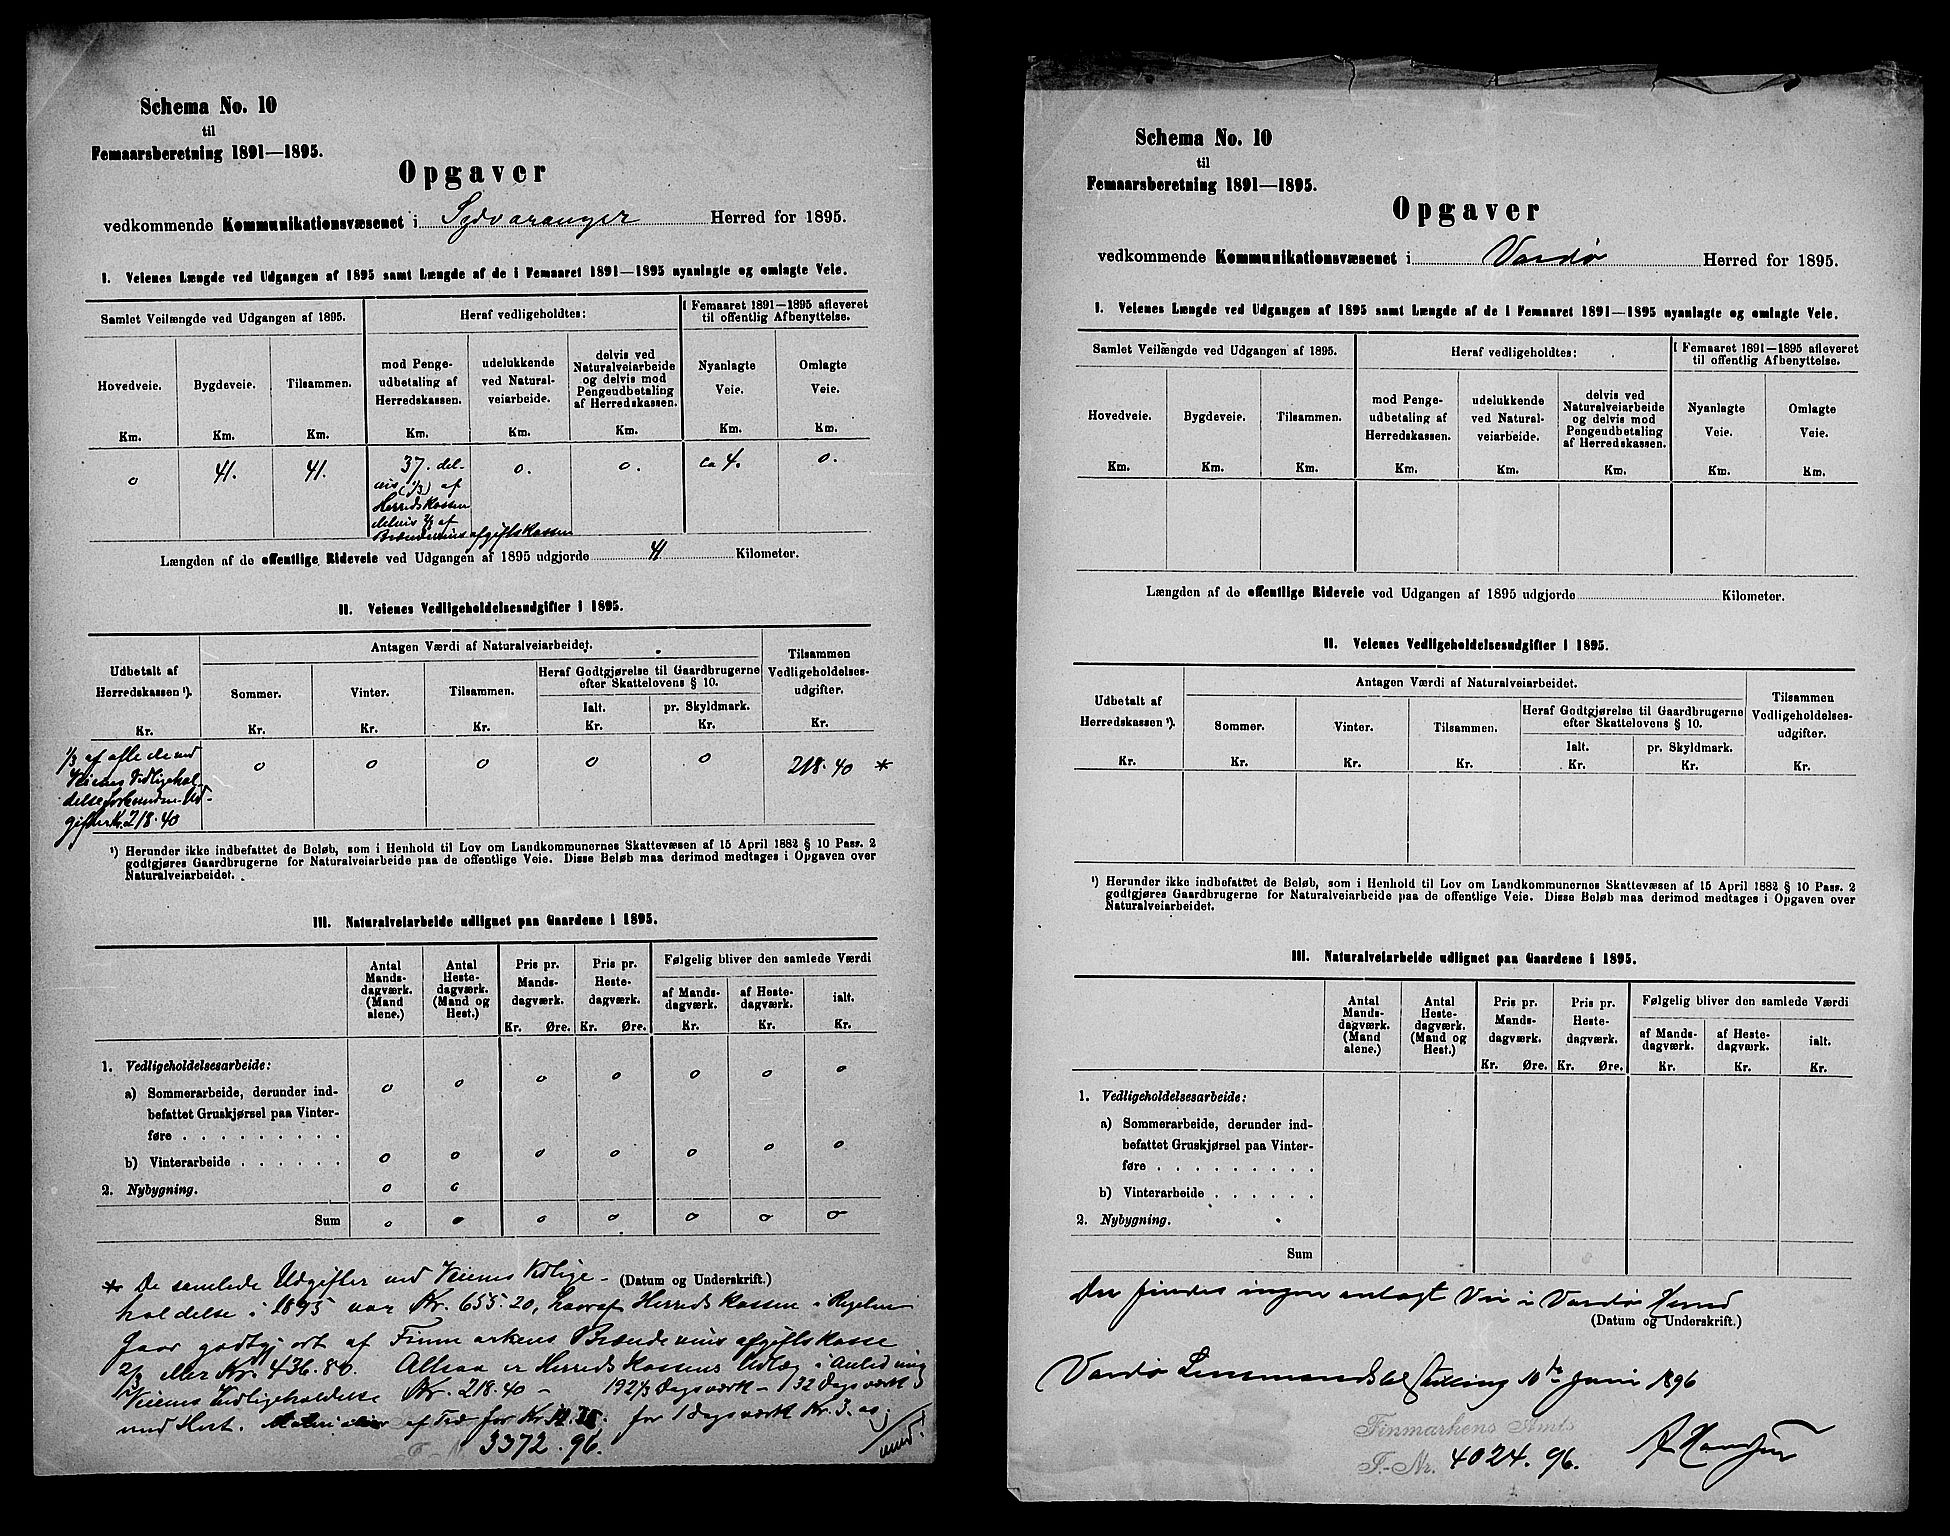 Schema No. 10
til
Femaarsberetning 1891—1895.
Opgaver
vedkommende Kommunikationsvæsenet i Sydvaranger Herred for 1895.
I. Veienes Længde ved Udgangen af 1895 samt Længde af de i Femaaret 1891—1895 nyanlagte og omlagte Veie.
Samlet Veilængde ved Udgangen af 1895.
Heraf vedligeholdtes:
I Femaaret 1891—1895 afleveret
til offentlig Afbenyttelse.
Hovedveie.
Bygdeveie.
Tilsammen.
mod Penge-
udbetaling af
Herredskassen.
udelukkende
ved Natural-
veiarbeide.
delvis ved
Naturalveiarbeide
og delvis mod
Pengeudbetaling
af Herredskassen.
Nyanlagte
Veie.
Omlagte
Veie.
Km. Km. Km. Km. Km. Km. Km. Km.
0 41. 41. 37. del- 0. 0. ca 4. 0.
vis (1/3) af
Herredskassen
delvis 2/3 af
Brændevinsafgiftskassen
Længden af de offentlige Rideveie ved Udgangen af 1895 udgjorde 41 Kilometer.
II. Veienes Vedligeholdelsesudgifter i 1895.
Udbetalt af
Herredskassen ¹).
Antagen Værdi af Naturalveiarbeidet.
Sommer.
Vinter.
Tilsammen.
Heraf Godtgjørelse til Gaardbrugerne
efter Skattelovens § 10.
Ialt.
pr. Skyldmark.
Tilsammen
Vedligeholdelses-
udgifter.
Kr. Kr. Kr. Kr. Kr. Kr. Kr.
1/3 af alle de ved
Veienes Vedligehol-
delse forbundne Ud-
gifter Kr. 218.40
0 0 0 0 0 218.40 *
¹) Herunder ikke indbefattet de Beløb, som i Henhold til Lov om Landkommunernes Skattevæsen af 15 April 1882 § 10 Pass. 2
godtgjøres Gaardbrugerne for Naturalveiarbeide paa de offentlige Veie. Disse Beløb maa derimod medtages i Opgaven over
Naturalveiarbeidet.
III. Naturalveiarbeide udlignet paa Gaardene i 1895.
Antal
Mands-
dagværk.
(Mand
alene.)
Antal
Heste-
dagværk.
(Mand og
Hest.)
Pris pr.
Mands-
dagværk.
Kr. Øre.
Pris pr.
Heste-
dagværk.
Kr. Øre.
Følgelig bliver den samlede Værdi
af Mands-
dagværk.
Kr.
af Heste-
dagværk.
Kr.
ialt.
Kr.
1. Vedligeholdelsesarbeide:
a) Sommerarbeide, derunder ind-
befattet Gruskjørsel paa Vinter-
føre . . . . . . . . . 0 0 0 0 0 0 0
b) Vinterarbeide . . . . . . 0 0 0 0 0 0 0
2. Nybygning. 0 0
Sum 0 0 0 0 0 0 0
* De samlede Udgifter ved Veienes Vedlige- (Datum og Underskrift.)
holdelse i 1895 var Kr. 655.20, hvoraf Herredskassen i Regelen
faar godtgjort af Finnmarkens Brændevinsafgiftskasse
2/3 eller Kr. 436.80. Altsaa er Herredskassens Udlæg i Anledning
Veienes Vedligeholdelse Kr. 218.40 — 192 1/3 Dagsværk — 132 Dagsværk
med Hest. Materialier af Træ for Kr. for 1 Dagsværk Kr. 3.00;
F.-Nr. 3372.96.
/vend!
Schema No. 10
til
Femaarsberetning 1891—1895.
Opgaver
vedkommende Kommunikationsvæsenet i Vardø Herred for 1895.
I. Veienes Længde ved Udgangen af 1895 samt Længde af de i Femaaret 1891—1895 nyanlagte og omlagte Veie.
Samlet Veilængde ved Udgangen af 1895.
Heraf vedligeholdtes:
I Femaaret 1891—1895 afleveret
til offentlig Afbenyttelse.
Hovedveie.
Bygdeveie.
Tilsammen.
mod Penge-
udbetaling af
Herredskassen.
udelukkende
ved Natural-
veiarbeide.
delvis ved
Naturalveiarbeide
og delvis mod
Pengeudbetaling
af Herredskassen.
Nyanlagte
Veie.
Omlagte
Veie.
Km. Km. Km. Km. Km. Km. Km. Km.
Længden af de offentlige Rideveie ved Udgangen af 1895 udgjorde Kilometer.
II. Veienes Vedligeholdelsesudgifter i 1895.
Udbetalt af
Herredskassen ¹).
Antagen Værdi af Naturalveiarbeidet.
Sommer.
Vinter.
Tilsammen.
Heraf Godtgjørelse til Gaardbrugerne
efter Skattelovens § 10.
Ialt.
pr. Skyldmark.
Tilsammen
Vedligeholdelses-
udgifter.
Kr. Kr. Kr. Kr. Kr. Kr. Kr.
¹) Herunder ikke indbefattet de Beløb, som i Henhold til Lov om Landkommunernes Skattevæsen af 15 April 1882 § 10 Pass. 2
godtgjøres Gaardbrugerne for Naturalveiarbeide paa de offentlige Veie. Disse Beløb maa derimod medtages i Opgaven over
Naturalveiarbeidet.
III. Naturalveiarbeide udlignet paa Gaardene i 1895.
Antal
Mands-
dagværk.
(Mand
alene.)
Antal
Heste-
dagværk.
(Mand og
Hest.)
Pris pr.
Mands-
dagværk.
Kr. Øre.
Pris pr.
Heste-
dagværk.
Kr. Øre.
Følgelig bliver den samlede Værdi
af Mands-
dagværk.
Kr.
af Heste-
dagværk.
Kr.
ialt.
Kr.
1. Vedligeholdelsesarbeide:
a) Sommerarbeide, derunder ind-
befattet Gruskjørsel paa Vinter-
føre . . . . . . . . .
b) Vinterarbeide . . . . . .
2. Nybygning.
Sum
Der findes ingen anlagt Vei i Vardø Herred
(Datum og Underskrift.)
Vardø Lensmandsbestilling 10de Juni 1896
Finmarkens Amt
F.-Nr. 4024.96.